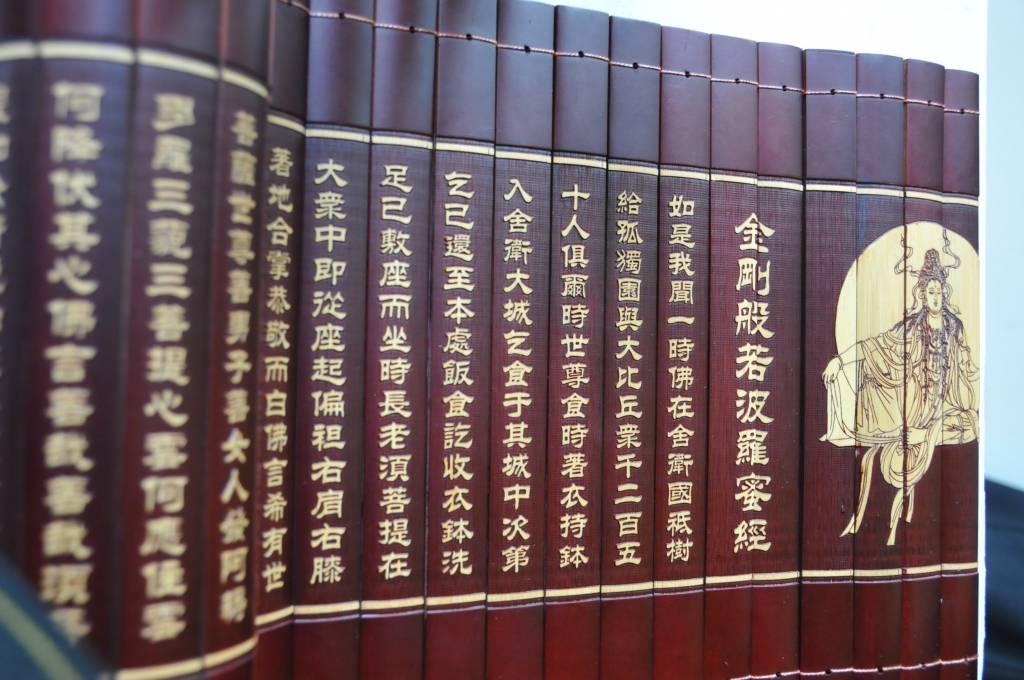 金剛般若波羅蜜經
如是我聞一時佛在舍衛國祇樹
給孤獨園與大比丘衆千二百五
十人俱爾時世尊食時著衣持鉢
入舍衛大城乞食于其城中次第
乞已還至本處飯食訖收衣鉢洗
足已敷座而坐時長老須菩提在
大衆中即從座起偏袒右肩右膝
著地合掌恭敬而白佛言希有世
菩薩世尊善男子善女人發阿耨
多羅三藐三菩提心云何應住云
何降伏其心佛言善哉善哉須菩